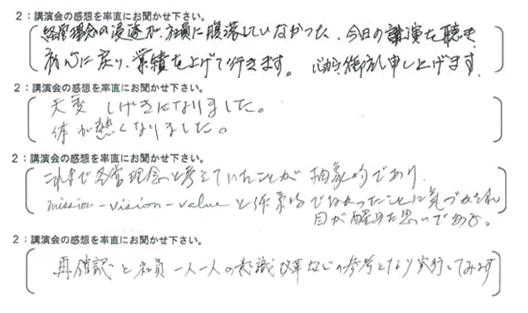 2：講演会の感想を率直にお聞かせ下さい。
経営理念の浸透が、社員に腹落していなかった、今日の講演を聴き
初心に戻り、業績を上げて行きます。心から御礼申し上げます。
2：講演会の感想を率直にお聞かせ下さい。
大変 しげきになりました。
体が熱くなりました。
2：講演会の感想を率直にお聞かせ下さい。
これまで経営理念と考えていたことが 抽象的であり、
mission-vision-valueと体系的でなかったことに気づかされ
目が醒めた思いである。
2：講演会の感想を率直にお聞かせ下さい。
再確認と社員一人一人の意識改革などの参考となり実行してみます